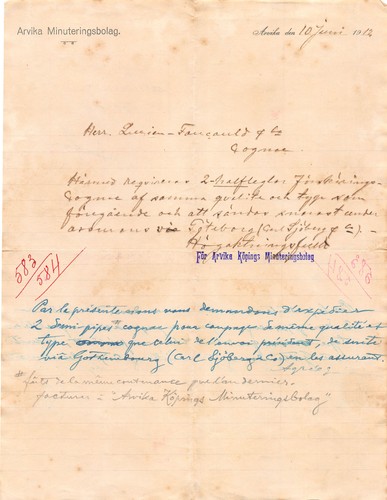 Arvika Minuteringsbolag.
Arvika den 10 Juni 1912
Herr. Lucien-Foucauld & Co
Cognac
Härmed requireras 2 halfleglar Förskärnings-
Cognac af samma qvalité och type som
föregående och att sändas snarast under
via Göteborg (Carl Sjöberg & Co).-
Högaktningsfullt
För Arvika Köpings Minuteringsbolag
583
584
Par la présente nous vous demandons d'expédier
2 Demi pipes cognac pour coupage de même qualité et
type que celui de l'envoi précédent, de suite
via Gothembourg (Carl Sjöberg & Co) en les assurant.
Agréez
fûts de la même contenance que l'an dernier.
facturer à "Arvika Köpings Minuteringsbolag"